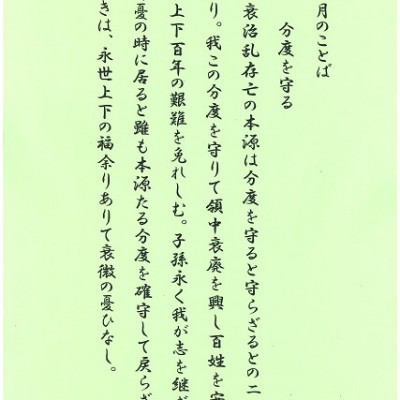 月のことば
分度を守る
衰治乱存亡の本源は分度を守ると守らざるとの二
り。我この分度を守りて領中衰廃を興し百姓を安
上下百年の艱難を免れしむ。子孫永く我が志を継が
憂の時に居ると雖も本源たる分度を確守して戻らざ
きは、永世上下の福余りありて衰微の憂ひなし。